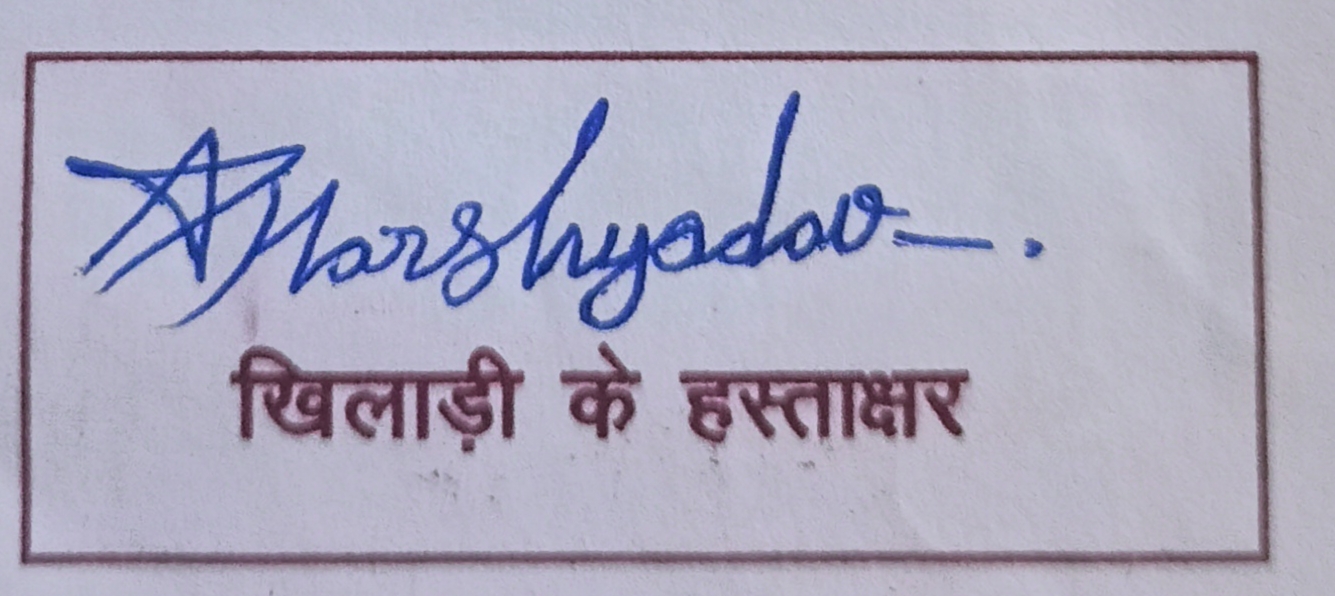 Harshyadav
खिलाड़ी के हस्ताक्षर